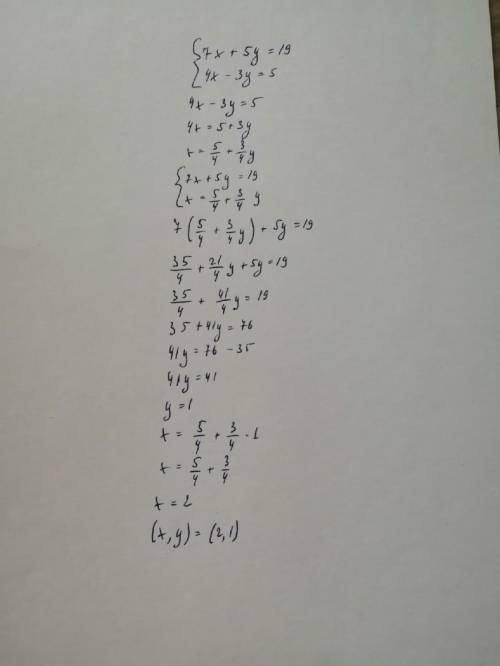 {7x + 5y = 19
{4x - 3y = 5
4x - 3y = 5
4x = 5 + 3y
x = 5/4 + 3/4 y
{7x + 5y = 19
{x = 5/4 + 3/4 y
7(5/4 + 3/4 y) + 5y = 19
35/4 + 21/4 y + 5y = 19
35/4 + 41/4 y = 19
35 + 41y = 76
41y = 76 - 35
41y = 41
y = 1
x = 5/4 + 3/4 · 1
x = 5/4 + 3/4
x = 2
(x, y) = (2, 1)